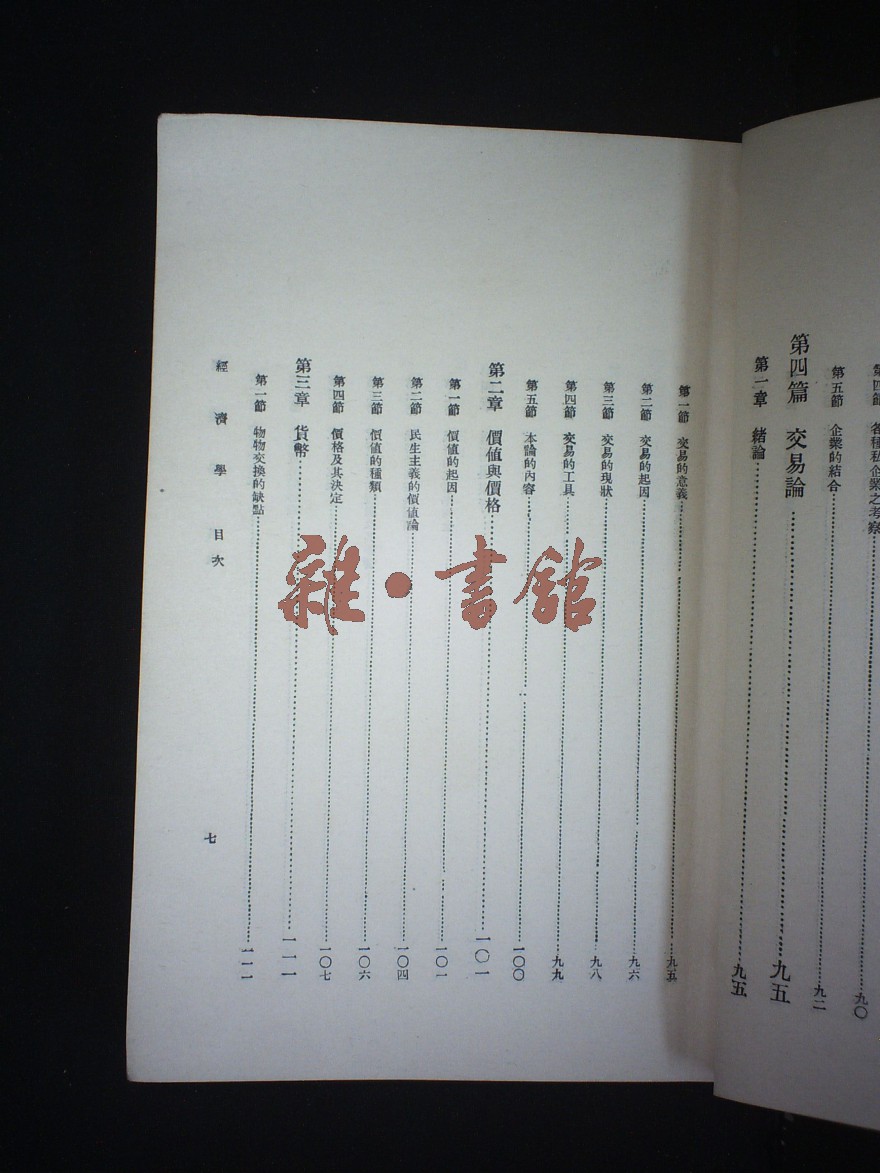 第四節 各種私企業之考察……九〇
第五節 企業的結合……九二
第四篇 交易論……九五
第一章 緒論……九五
第一節 交易的意義……九五
第二節 交易的起因……九六
第三節 交易的現狀……九八
第四節 交易的工具……九九
第五節 本論的內容……一〇〇
第二章 價值與價格……一〇一
第一節 價值的起因……一〇一
第二節 民生主義的價值論……一〇四
第三節 價值的種類……一〇六
第四節 價格及其決定……一〇七
第三章 貨幣……一一一
第一節 物物交換的缺點……一一一
經濟學 目次
七
雜·書館